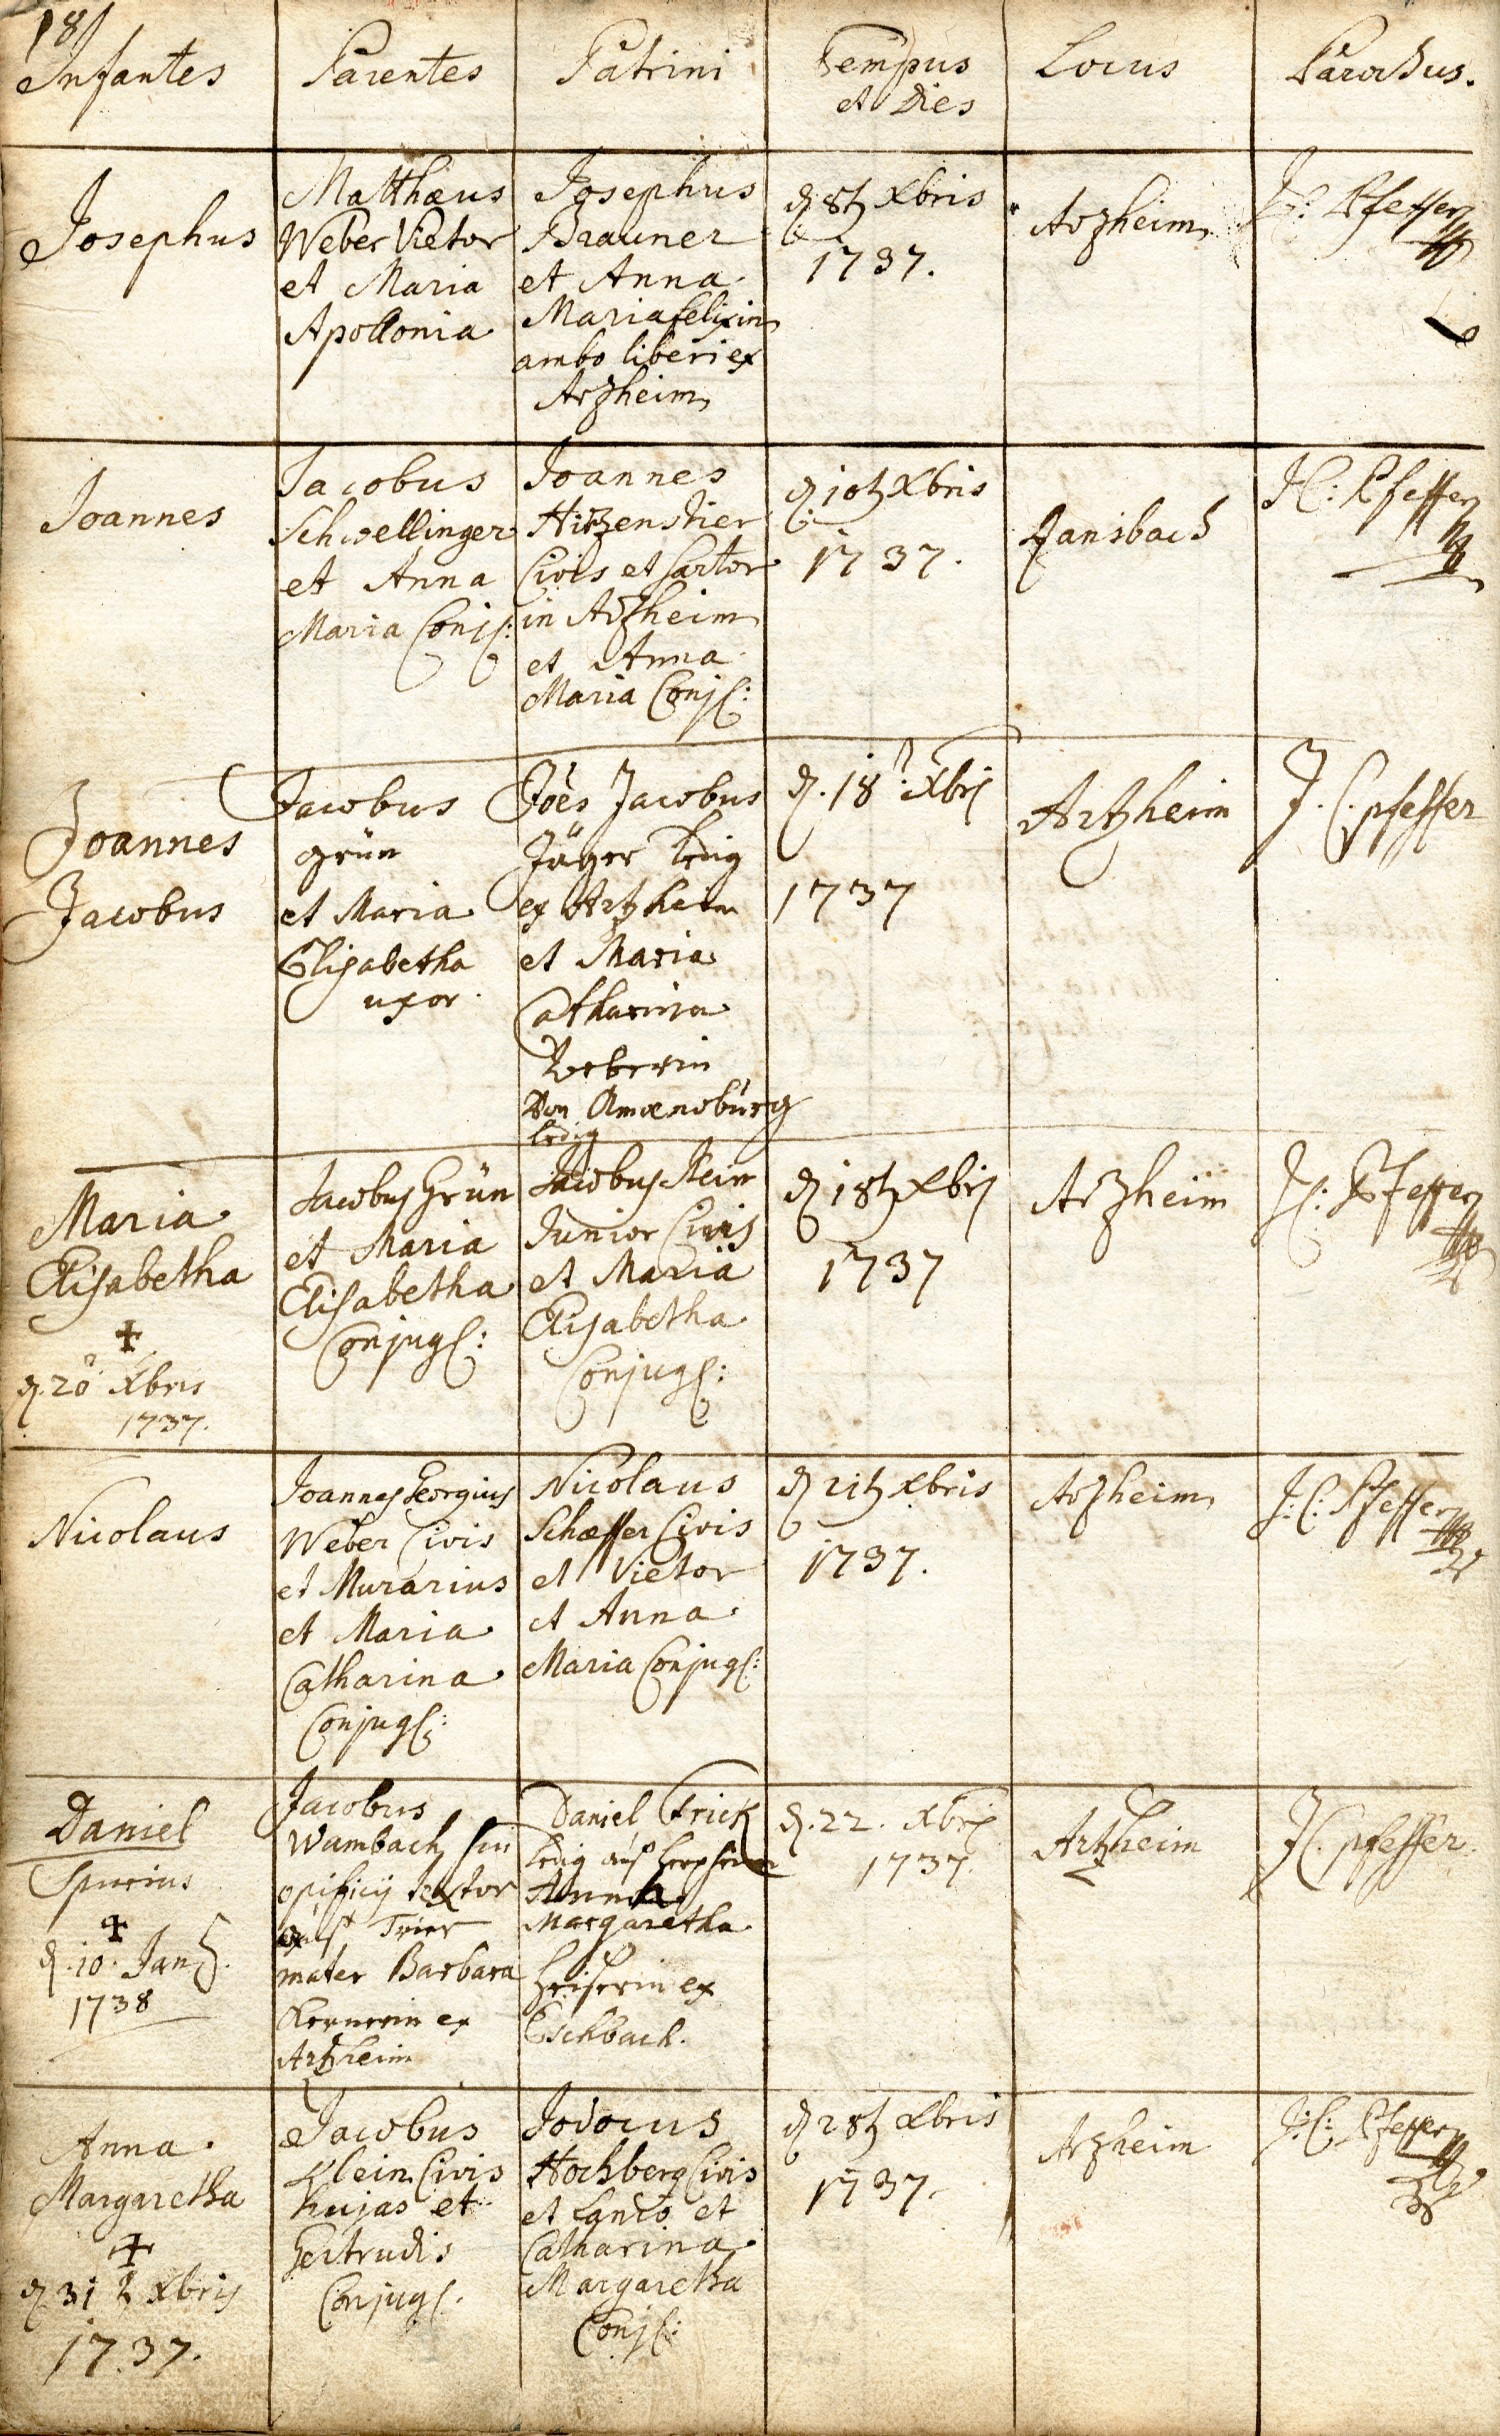 18
Infantes
Parentes
Patrini
Tempus
et Dies
Locus
Parochus.
Josephus
Matthæus
Weber Vietor
et Maria
Apollonia
Josephus
Brauner
et Anna
Maria Felixin
ambo liberi ex
Arzheim
d 8t Xbris
1737.
Arzheim
J: C: Pfeffer
Joannes
Jacobus
Schwellinger
et Anna
Maria Conj:
Joannes
Hitzenstier
Civis et Sartor
in Arzheim
et Anna
Maria Conj:
d 10t Xbris
1737.
Ransbach
J C: Pfeffer
Joannes
Jacobus
Jacobus
Grün
et Maria
Elisabetha
uxor.
Joes Jacobus
Jäger ledig
ex Artzheim
et Maria
Catharina
Weberin
Von Amoenoburg
ledig
d. 18 Xbris
1737
Artzheim
J. C. pfeffer
Maria
Elisabetha
✝
d. 20 Xbris
1737.
Jacobus Grün
et Maria
Elisabetha
Conjug:
Jacobus Klein
Junior Civis
et Maria
Elisabetha
Conjug:
d 18t Xbris
1737
Arzheim
J C: Pfeffer
Nicolaus
Joannes Georgius
Weber Civis
et Murarius
et Maria
Catharina
Conjug:
Nicolaus
Schæffer Civis
et Vietor
et Anna
Maria Conjug:
d 21t Xbris
1737.
Arzheim
J: C: Pfeffer
Daniel
Spurius
✝
d. 10. Jan.
1738
Jacobus
Wambach sui
opificij textor
Trier
mater Barbara
Kernerin ex
Artzheim
Daniel Frick
ledig aus
Anna
Margaretha
Heiserin ex
Eschbach.
d. 22. Xbris
1737.
Artzheim
J C. pfeffer
Anna
Margaretha
✝
d 31 Xbris
1737.
Jacobus
Klein Civis
hujas et
Gertrudis
Conjug.
Jodocus
Hochberg Civis
et Lanio et
Catharina
Margaretha
Conj:
d 28t Xbris
1737.
Arzheim
J: C: Pfeffer